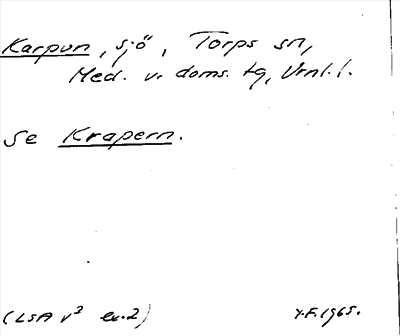 Karpun, sjö, Torps sn,
Med. v. doms. tg, Vrnl. l.
Se Krapern.
(LSA v² ex.2) Y.F. 1965.